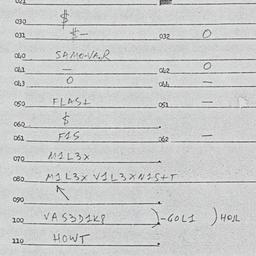 021
030 $
031 $- 032 0
040 SAMO-VAR
041 — 042 0
043 0 044 —
050 FLAS1 051 —
060 $
061 F1S 062 —
070 M1L3X
080 M1L3X V1L3XN1S+T
090
100 VAS3D1K8 )-GOL1 )
110 HOWT